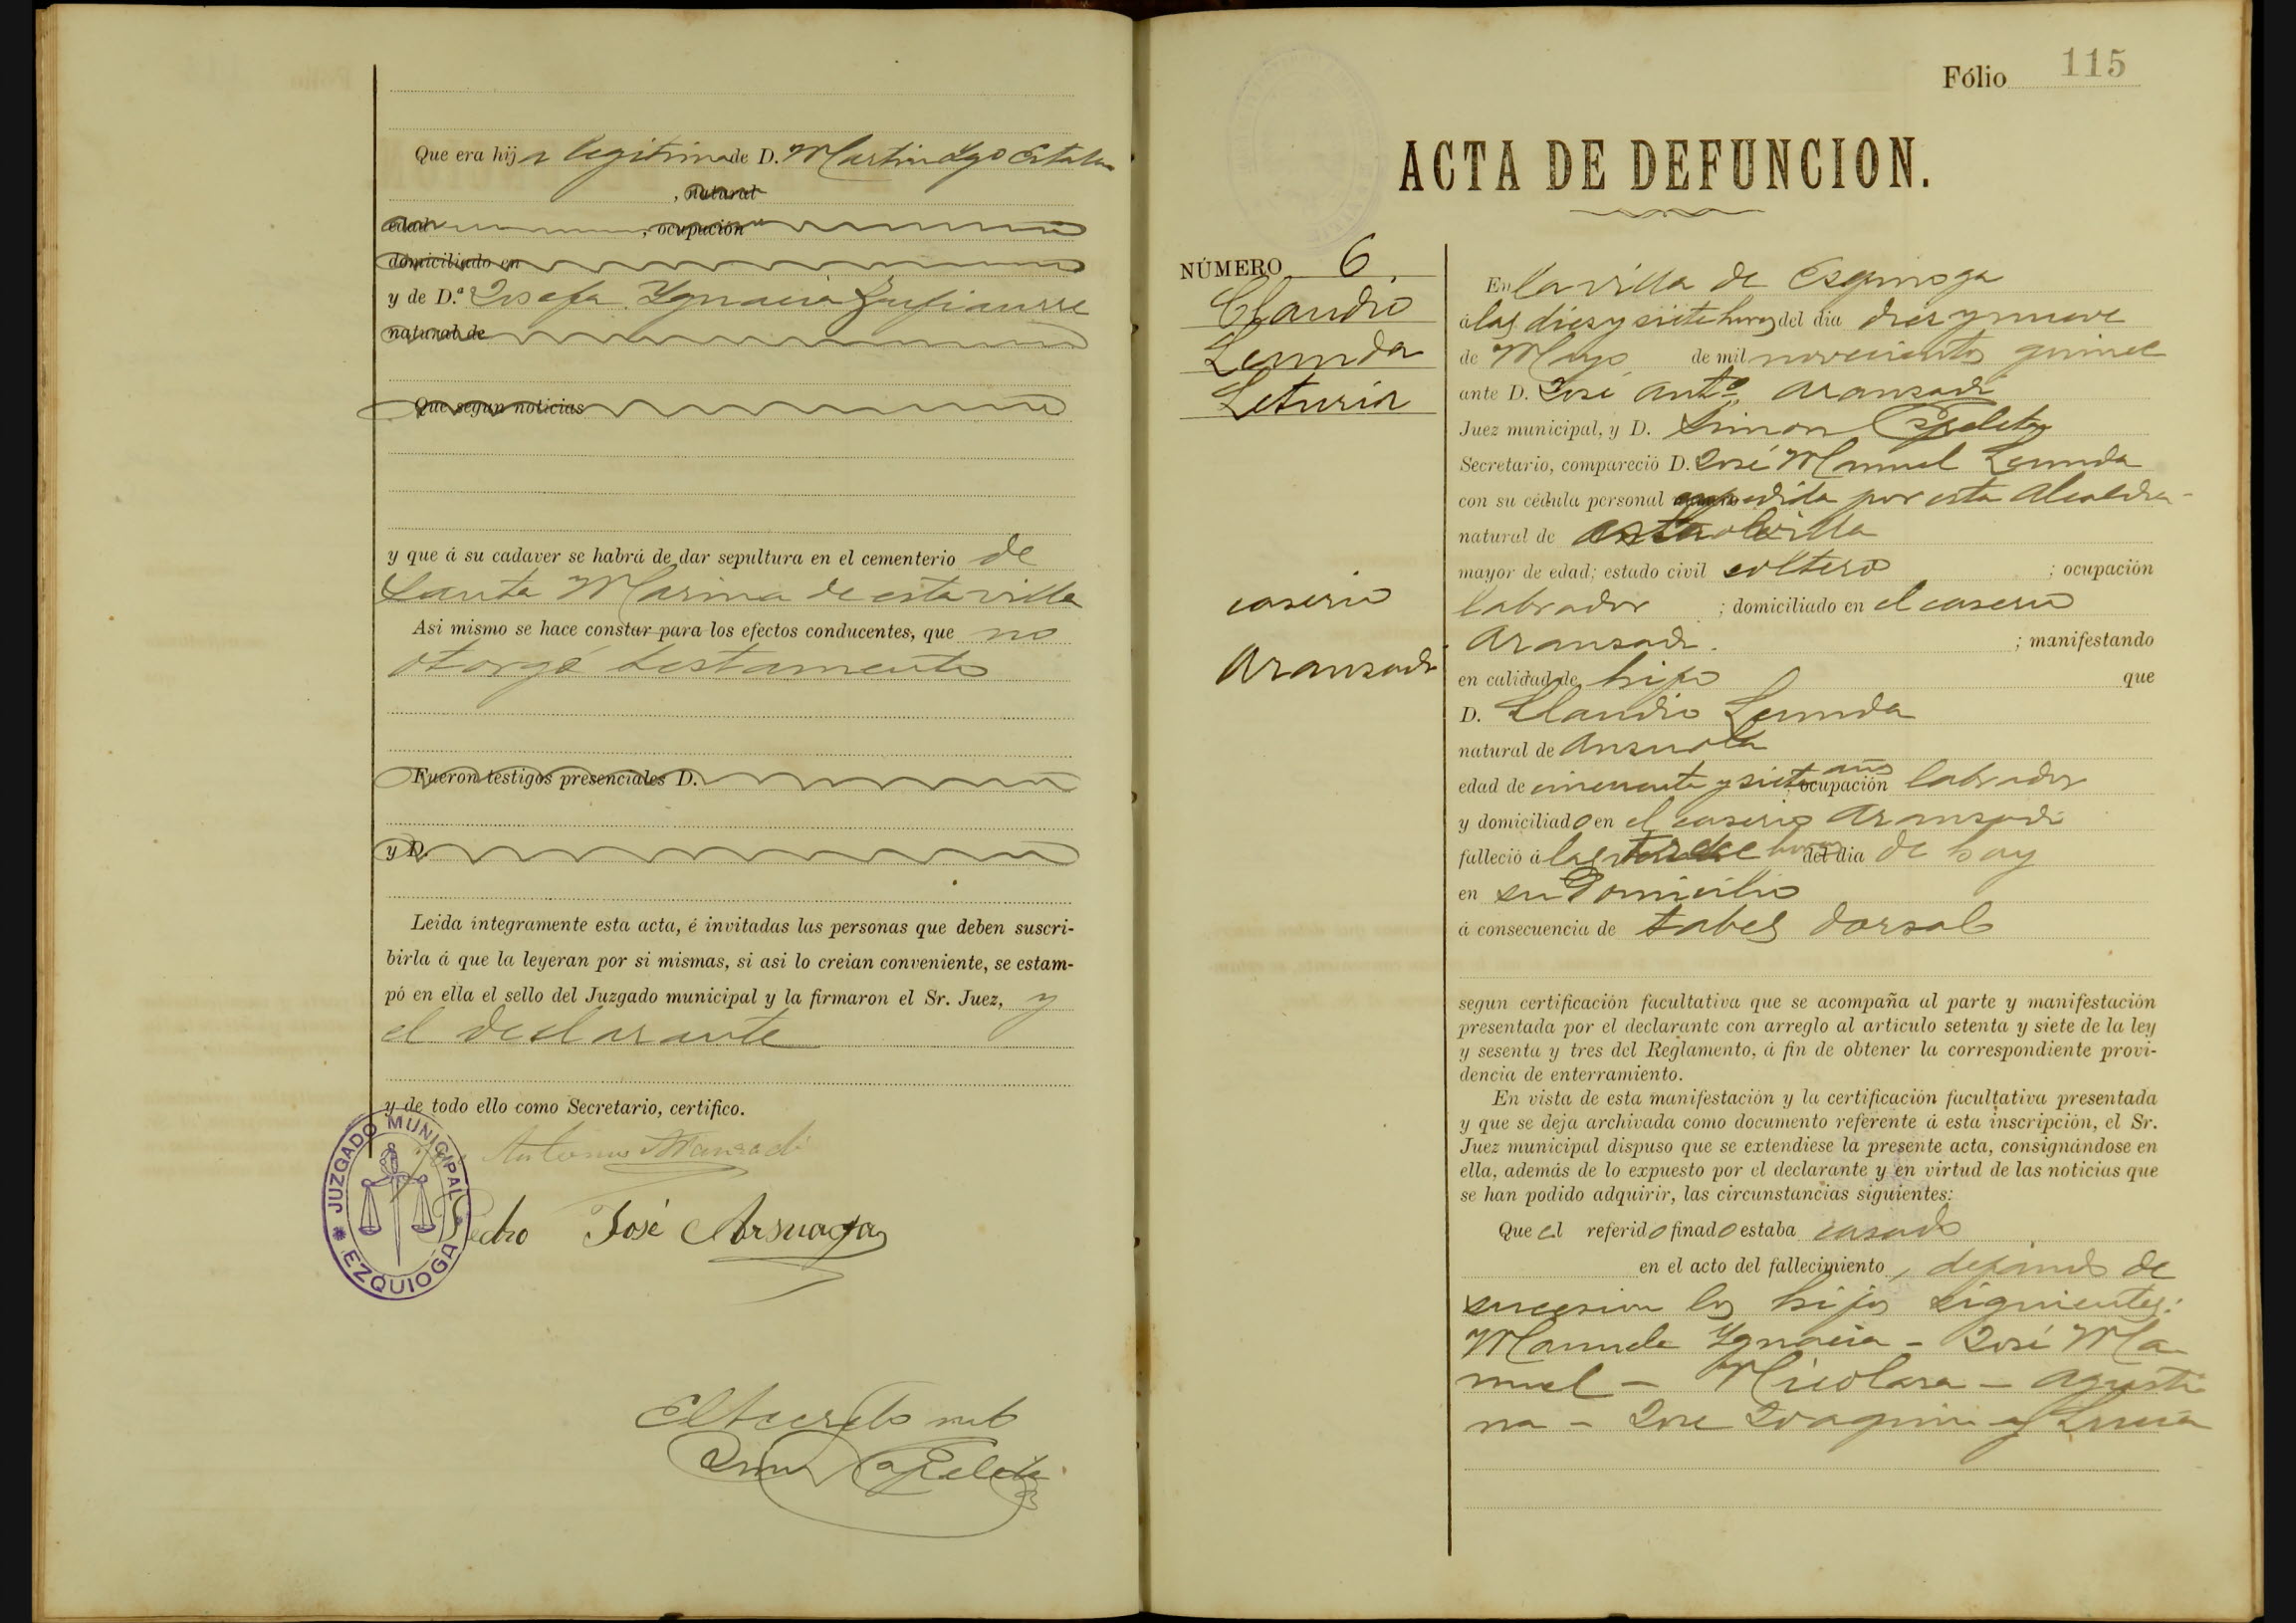 Que era hija legitima de D. Martin Ygo
, natural
edad , ocupación
domiciliado en
y de D.ª Josefa Ygnacia
natural de
Que segun noticias
y que á su cadaver se habrá de dar sepultura en el cementerio de
Santa Marina de esta villa
Asi mismo se hace constar para los efectos conducentes, que no
otorgó testamento
Fueron testigos presenciales D.
y D.
Leida íntegramente esta acta, é invitadas las personas que deben suscri-
birla á que la leyeran por si mismas, si asi lo creian conveniente, se estam-
pó en ella el sello del Juzgado municipal y la firmaron el Sr. Juez, y
el declarante
y de todo ello como Secretario, certifico.
Antonio Aranzadi
JUZGADO MUNICIPAL
EZQUIOGA
Pedro José Arsuaga
El Secreto
Fólio 115
ACTA DE DEFUNCION.
NÚMERO 6.
Claudio
Lecunda
Leturia
caserio
Aransadi
En la villa de Esquioga
á las dies y siete horas del dia dies y nueve
de Mayo de mil novecientos quince
ante D. José Antº Aransadi
Juez municipal, y D. Simon
Secretario, compareció D. José Manuel Lecunda
con su cédula personal expedida por esta Alcaldia
natural de esta villa
mayor de edad; estado civil soltero ; ocupación
labrador ; domiciliado en el caserio
Aransadi. ; manifestando
en calidad de hijo que
D. Claudio Lecunda
natural de Ansuola
edad de cincuenta y siete años ocupación labrador
y domiciliado en el caserio Aransadi
falleció á las horas del dia de hoy
en su domicilio
á consecuencia de tabes dorsal
segun certificación facultativa que se acompaña al parte y manifestación
presentada por el declarante con arreglo al artículo setenta y siete de la ley
y sesenta y tres del Reglamento, á fin de obtener la correspondiente provi-
dencia de enterramiento.
En vista de esta manifestación y la certificación facultativa presentada
y que se deja archivada como documento referente á esta inscripción, el Sr.
Juez municipal dispuso que se extendiese la presente acta, consignándose en
ella, además de lo expuesto por el declarante y en virtud de las noticias que
se han podido adquirir, las circunstancias siguientes:
Que el referido finado estaba casado
en el acto del fallecimiento, dejando de
sucesion los hijos siguientes:
Manuela Ygnacia - José Ma
nuel - Nicolasa - Agusti
na - Jose Joaquin y Lucia